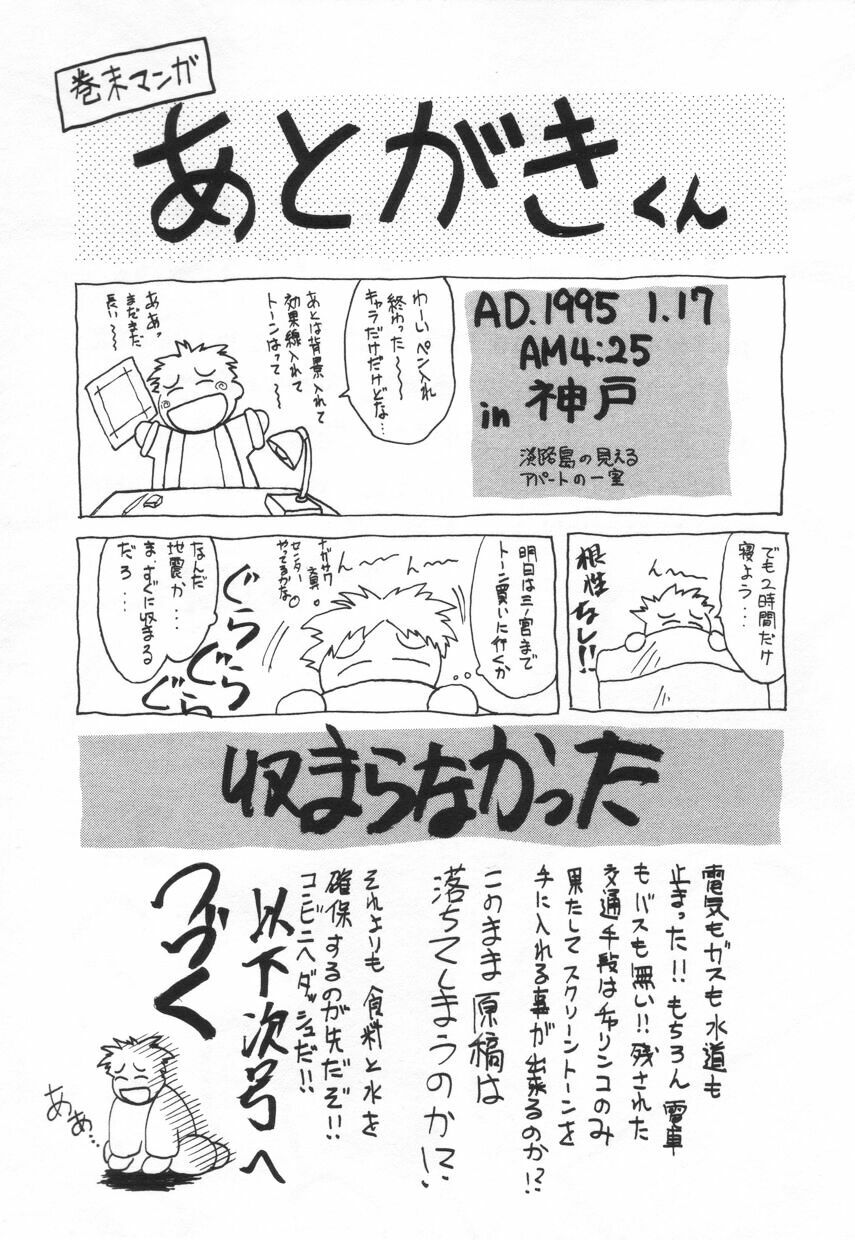 巻末マンガ
あとがきくん
AD.1995 1.17
AM4:25
in 神戸
淡路島の見える
アパートの一室
わーいペン入れ
終わった〜〜
キャラだけだけどな…
あとは背景入れて
効果線入れて
トーンはって〜〜
ああっ
まだまだ
長い〜〜
でも2時間だけ
寝よう・・・
ん〜〜
根性なし!!
明日は三ノ宮まで
トーン買いに行くか
ん〜〜
ん〜〜
ナガサワ
センター
やってるかな。
ぐらぐらぐら
なんだ
地震か・・・
ま、すぐに収まる
だろ・・・
収まらなかった
電気もガスも水道も
止まった!!もちろん電車
もバスも無い!!残された
交通手段はチャリンコのみ
果たしてスクリーントーンを
手に入れる事が出来るのか!?
このまま原稿は
落ちてしまうのか!?
それよりも食料と水を
確保するのが先だぞ!!
コンビニへダッシュだ!!
以下次号へ
つづく
ああ…